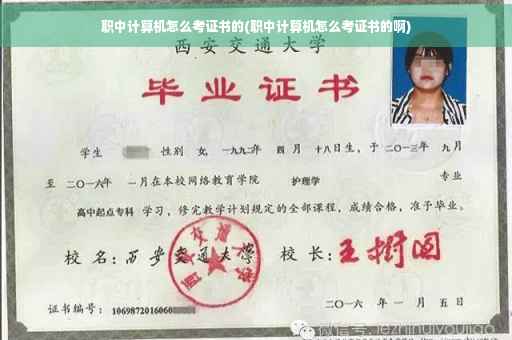 职中计算机怎么考证书的(职中计算机怎么考证书的啊)
西安交通大学
毕业证书
学生 性别 女, 一九九二年 四月 十八日生, 于 二〇一三年 九月
至 二〇一六年 一月在本校网络教育学院 护理学 专业
高中起点专科 学习, 修完教学计划规定的全部课程, 成绩合格, 准予毕业。
校名: 西安交通大学 校长: 王树国
西安交通大学
证书编号: 1069872016060
二〇一六 年 一 月 五 日
微信号: lezhihuiyoujiao